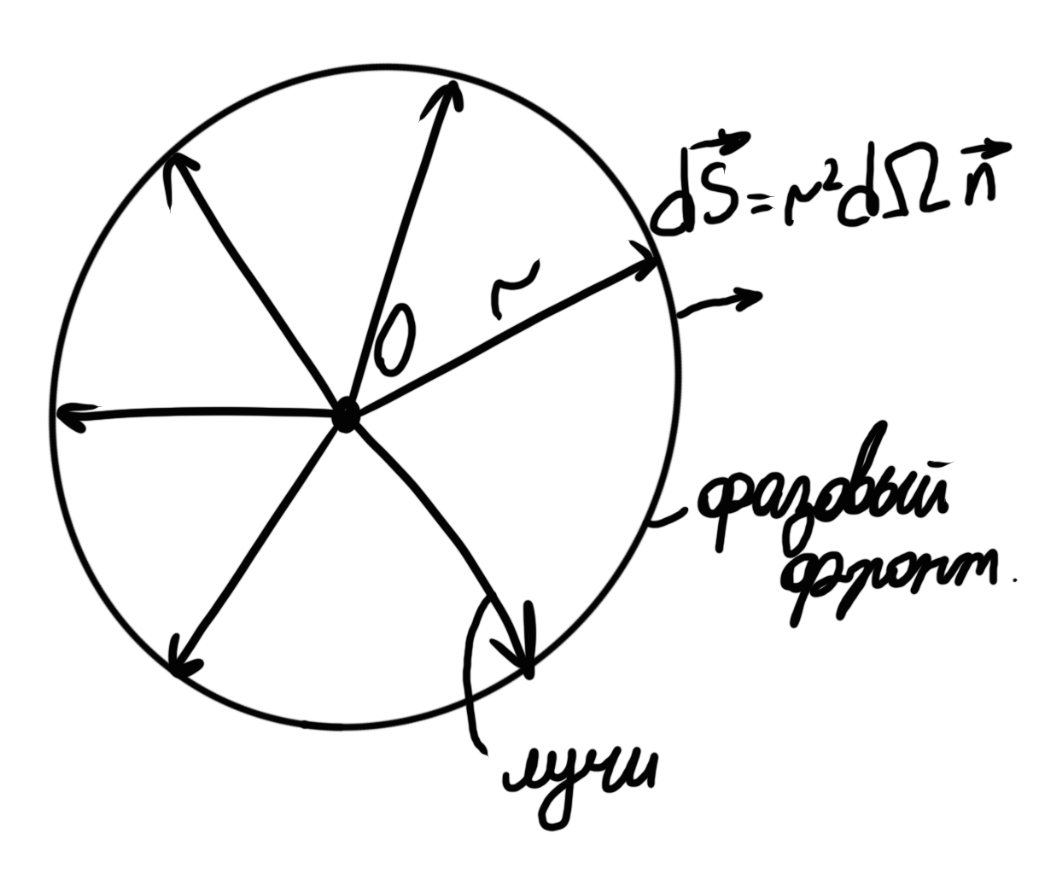 dS⃗ = r²dΩn⃗
r
O
фазовый
фронт.
лучи